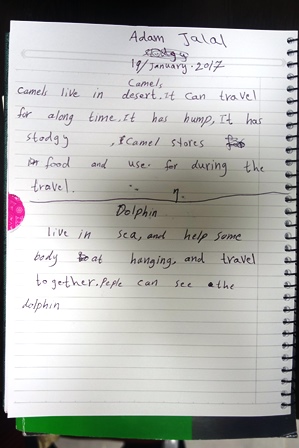 Adam Jalal
19/January.2017
Camels
camels live in desert. It can travel
for along time. It has hump, It has
stodgy , Camel stores
food and use. for during the
travel.
Dolphin
live in sea, and help some
body at hanging, and travel
together. Peple can see the
dolphin